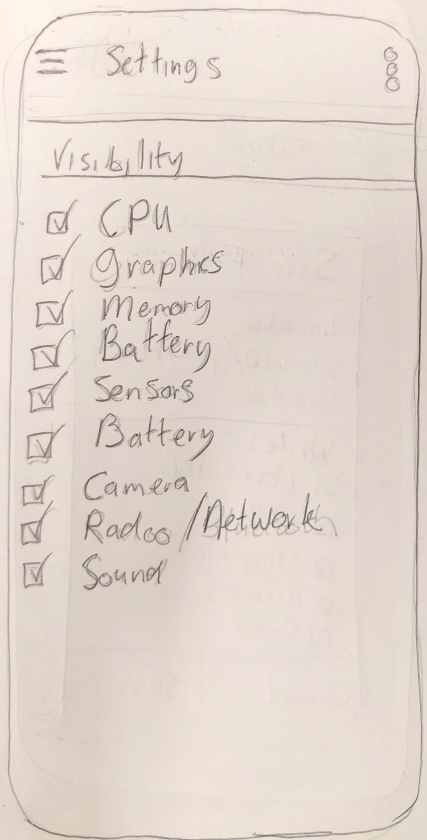 Settings
Visibility
CPU
Graphics
Memory
Battery
Sensors
Battery
Camera
Radoo/Network
Sound